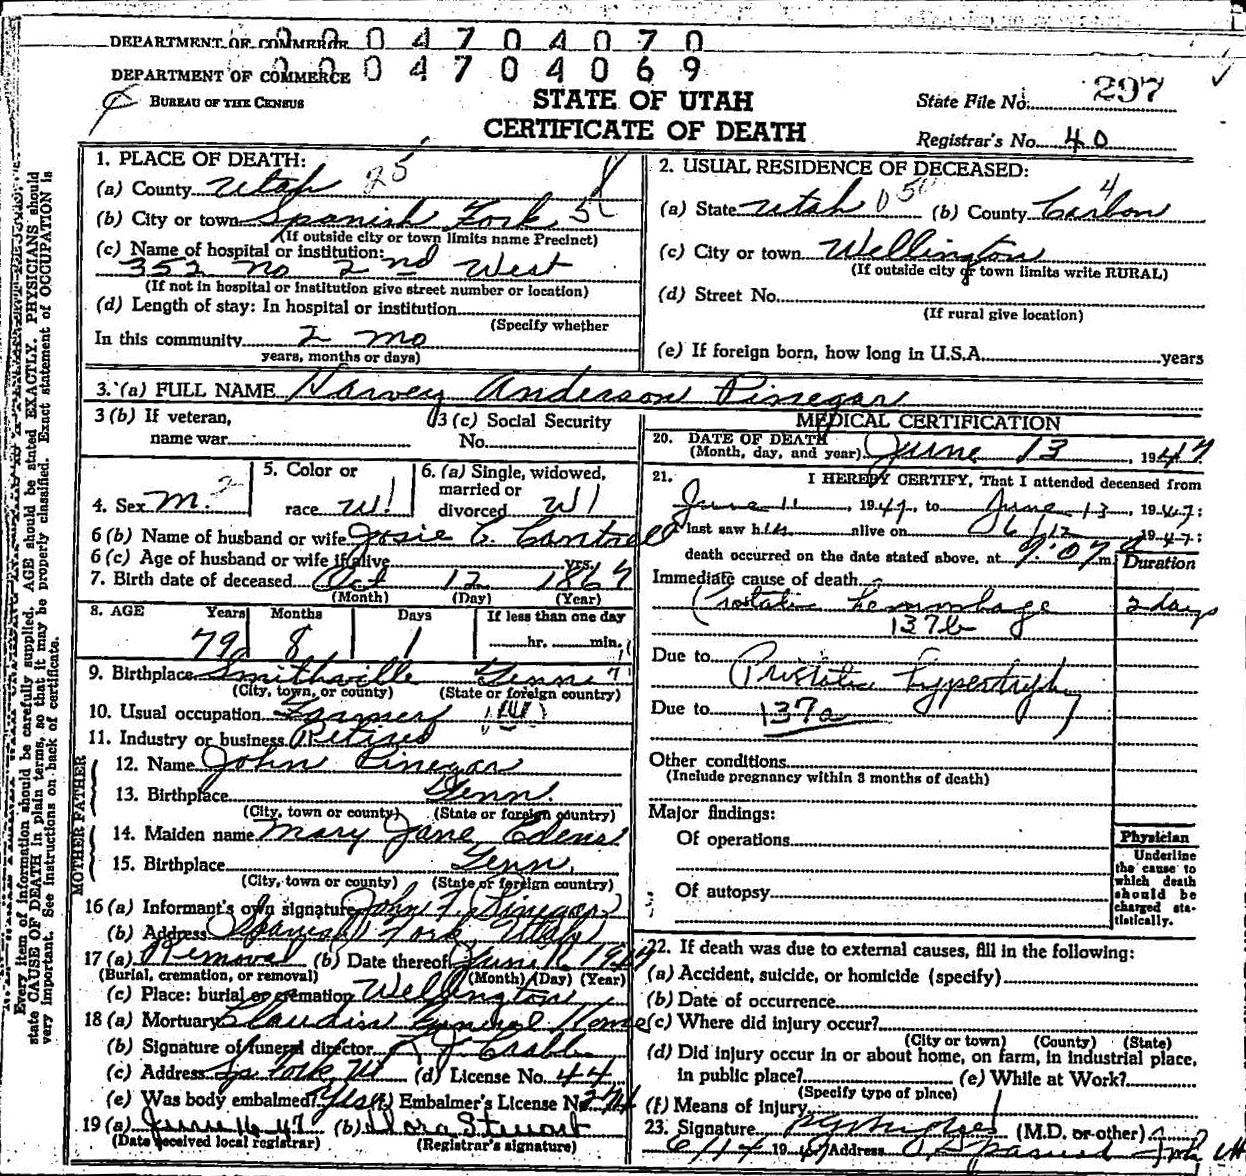 DEPARTMENT OF COMMERCE 0 0 0 4 7 0 4 0 7 0
DEPARTMENT OF COMMERCE 0 0 0 4 7 0 4 0 6 9
BUREAU OF THE CENSUS
STATE OF UTAH
CERTIFICATE OF DEATH
State File No. 297
Registrar's No. 40
Every item of information should be carefully supplied. AGE should be stated EXACTLY. PHYSICIANS should
state CAUSE OF DEATH in plain terms, so that it may be properly classified. Exact statement of OCCUPATION is
very important. See instructions on back of certificate.
1. PLACE OF DEATH:
(a) County Utah 25
(b) City or town Spanish Fork
(If outside city or town limits name Precinct)
(c) Name of hospital or institution:
352 No 2nd West
(If not in hospital or institution give street number or location)
(d) Length of stay: In hospital or institution
(Specify whether
In this community 2 mo
years, months or days)
2. USUAL RESIDENCE OF DECEASED:
(a) State Utah 05 (b) County Carbon 4
(c) City or town Wellington
(If outside city or town limits write RURAL)
(d) Street No.
(If rural give location)
(e) If foreign born, how long in U.S.A. years
3. (a) FULL NAME Harvey Anderson Pinegar
3 (b) If veteran,
name war
3 (c) Social Security
No.
4. Sex M. 2
5. Color or
race W
6. (a) Single, widowed,
married or
divorced W
6 (b) Name of husband or wife Josie C. Cantrell
6 (c) Age of husband or wife if alive yrs.
7. Birth date of deceased Oct 12 1867
(Month) (Day) (Year)
8. AGE Years Months Days If less than one day
79 8 1 hr. min.
9. Birthplace Smithville Tenn
(City, town, or county) (State or foreign country)
10. Usual occupation Farmer
11. Industry or business Retired
MOTHER FATHER
12. Name John Pinegar
13. Birthplace Tenn.
(City, town or county) (State or foreign country)
14. Maiden name Mary Jane Edens
15. Birthplace Tenn.
(City, town or county) (State or foreign country)
16 (a) Informant's own signature John F. Pinegar
(b) Address Spanish Fork, Utah
17 (a) Removal (b) Date thereof June 1947
(Burial, cremation, or removal) (Month) (Day) (Year)
(c) Place: burial or cremation Wellington
18 (a) Mortuary Claudin Funeral Home
(b) Signature of funeral director
(c) Address Sp Fork Ut (d) License No. 44
(e) Was body embalmed? Yes (f) Embalmer's License No 274
19 (a) June 16-47 (b) Dora Stewart
(Date received local registrar) (Registrar's signature)
MEDICAL CERTIFICATION
20. DATE OF DEATH
(Month, day, and year) June 13, 1947
21. I HEREBY CERTIFY, That I attended deceased from
June 11, 1947, to June 13, 1947;
last saw him alive on 6/12 1947;
death occurred on the date stated above, at 9:07 a m.
Duration
Immediate cause of death
Prostatic hemorrhage 2 days
137b
Due to Prostatic hypertrophy
Due to 137a
Other conditions
(Include pregnancy within 3 months of death)
Major findings:
Of operations
Of autopsy
Physician
Underline
the cause to
which death
should be
charged sta-
tistically.
22. If death was due to external causes, fill in the following:
(a) Accident, suicide, or homicide (specify)
(b) Date of occurrence
(c) Where did injury occur?
(City or town) (County) (State)
(d) Did injury occur in or about home, on farm, in industrial place,
in public place? (e) While at Work?
(Specify type of place)
(f) Means of injury
23. Signature (M.D. or other)
6/14 1947 Address Spanish Fork Ut